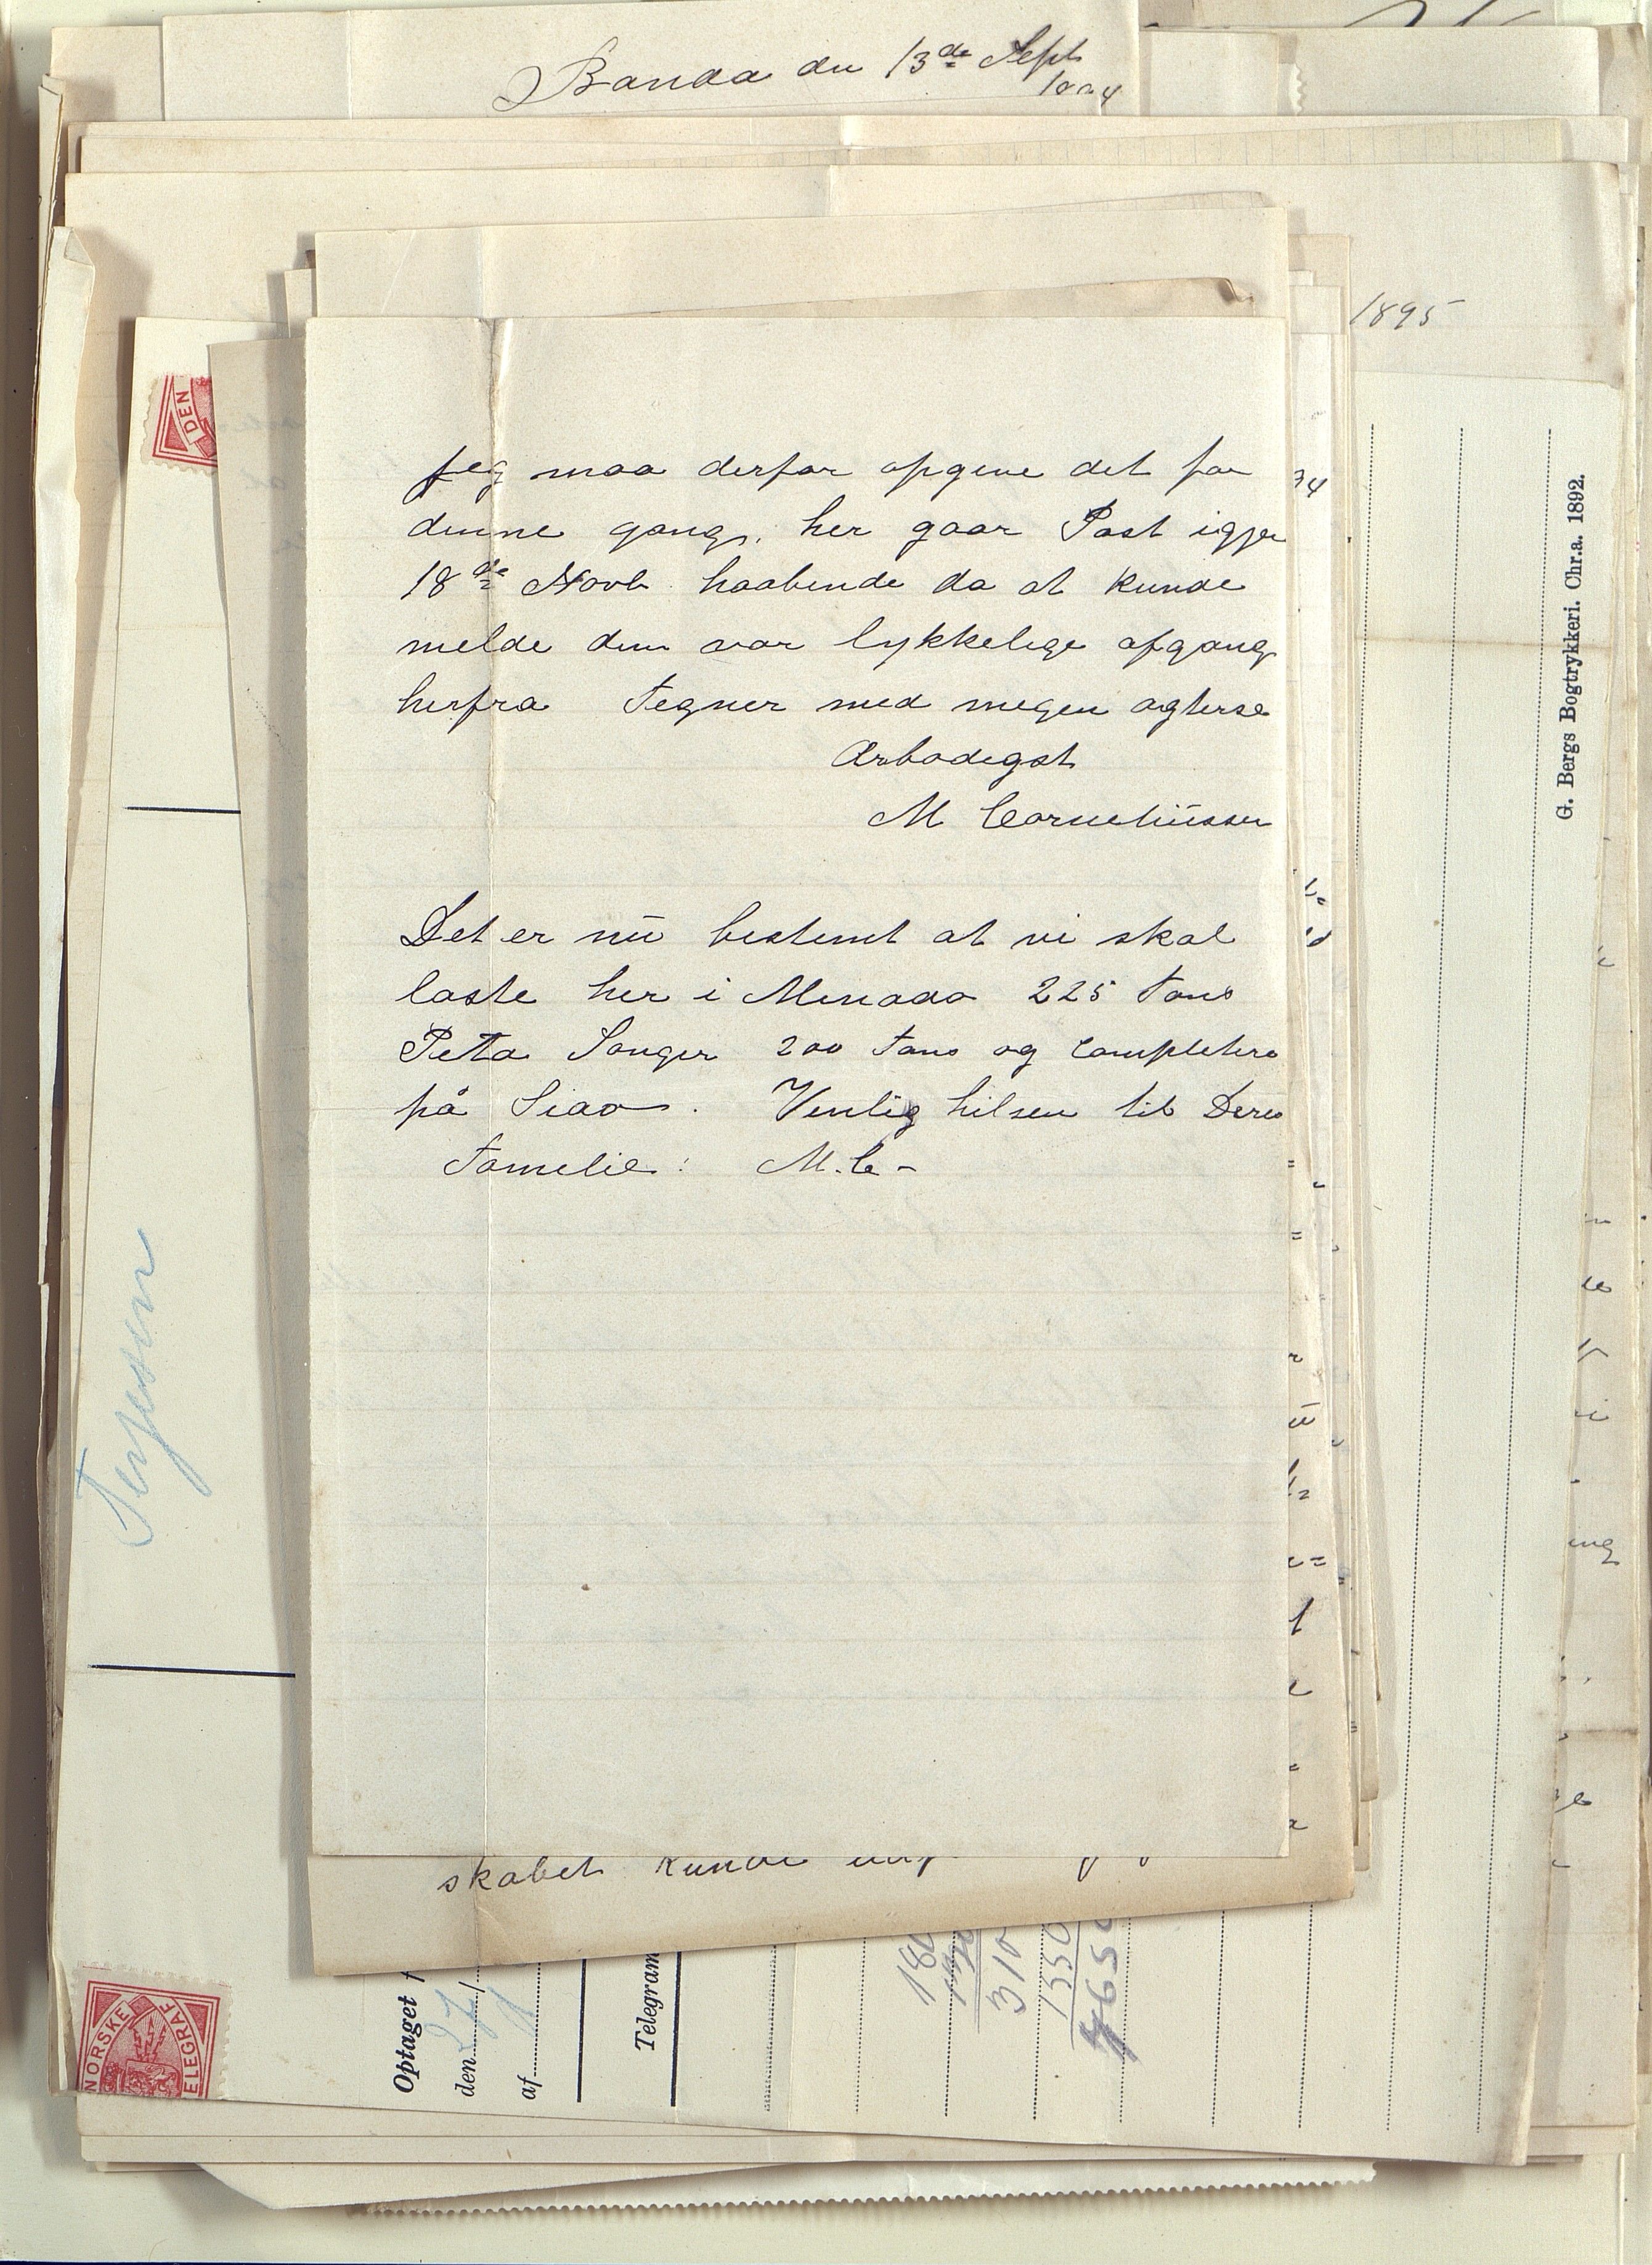 Banda den 13de Sept
1894
1895
Jeg maa derfor opgive det for
denne gang, her gaar Post igjen
18de Novb haabende da at kunde
melde dem vor lykkelige afgang
herfra Tegner med megen agtelse
Ærbødigst
M Corneliüssen
Det er nü bestemt at vi skal
laste her i Menado 225 Tons
Peta Sanger 200 Tons og Completere
på Siao. Venlig hilsen til Deres
Familie: M. C-
skabet kunde
Terjesen
DEN
NORSKE
TELEGRAF
Optaget
den 27/
af
Telegram
310
G. Bergs Bogtrykkeri. Chr.a. 1892.